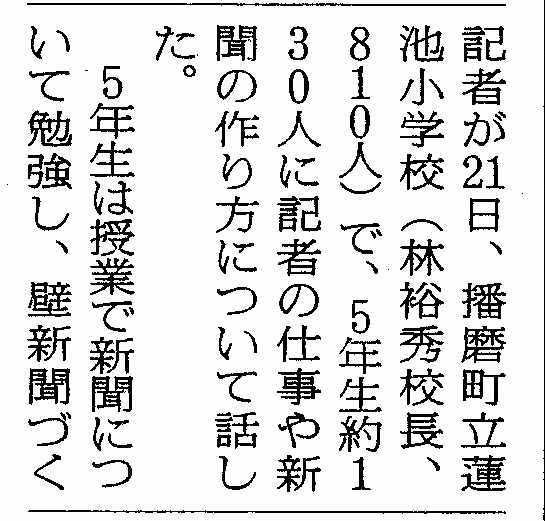 記者が21日、播磨町立蓮
池小学校（林裕秀校長、
810人）で、5年生約1
30人に記者の仕事や新
聞の作り方について話し
た。
5年生は授業で新聞につ
いて勉強し、壁新聞づく